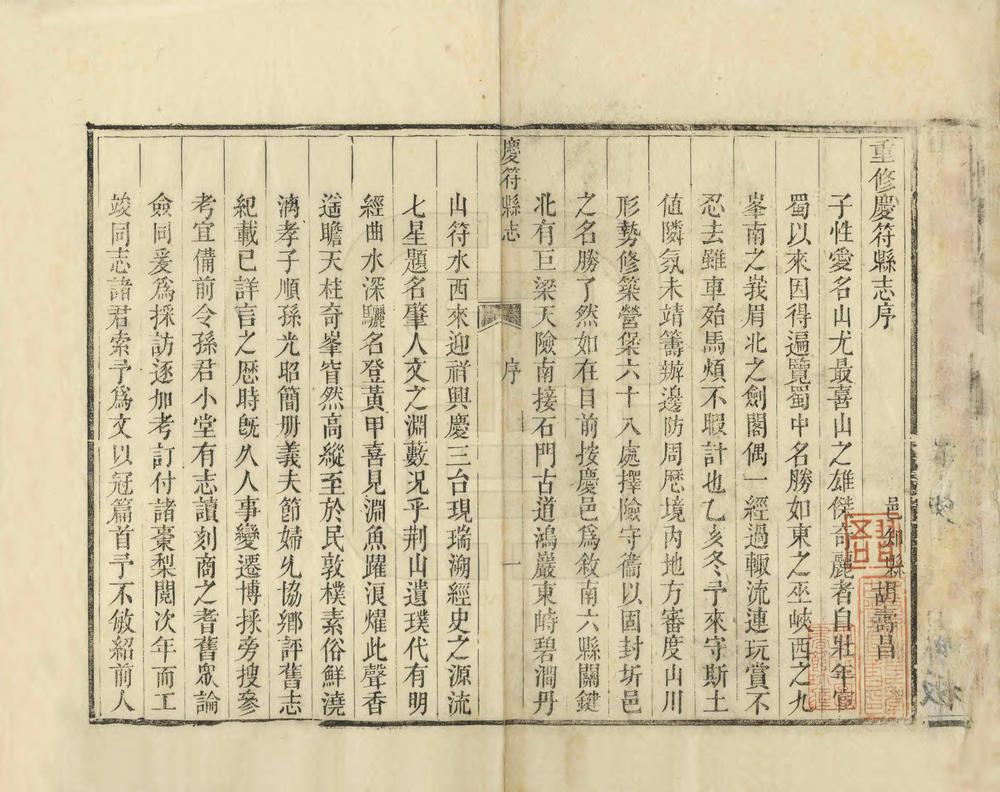 重修慶符縣志序
邑知縣胡壽昌
子性愛名山尤最喜山之雄傑奇麗者自壯年宦
蜀以來因得遍覽蜀中名勝如東之巫峽西之九
峯南之峩眉北之劍閣偶一經過輙流連玩賞不
忍去雖車殆馬煩不暇計也乙亥冬予來守斯土
値隣氛未靖籌辦邊防周歴境內地方審度山川
形勢修築營堡六十八處擇險守衞以固封圻邑
之名勝了然如在目前按慶邑爲敘南六縣關鍵
北有巨梁天險南接石門古道鴻巖東峙碧澗丹
慶符縣志
序
一
山符水西來迎祥興慶三台現瑞溯經史之源流
七星題名肇人文之淵藪况乎荆山遺璞代有明
經曲水深驪名登黃甲喜見淵魚躍浪燿此聲香
遥瞻天柱奇峯窅然高縱至於民敦樸素俗鮮澆
漓孝子順孫光昭簡册義夫節婦允協鄉評舊志
紀載已詳言之歴時旣久人事變遷博採旁搜參
考宜備前令孫君小堂有志讀刻商之耆舊衆論
僉同爰爲採訪逐加考訂付諸棗梨閱次年而工
竣同志諸君索予爲文以冠篇首予不敏紹前人